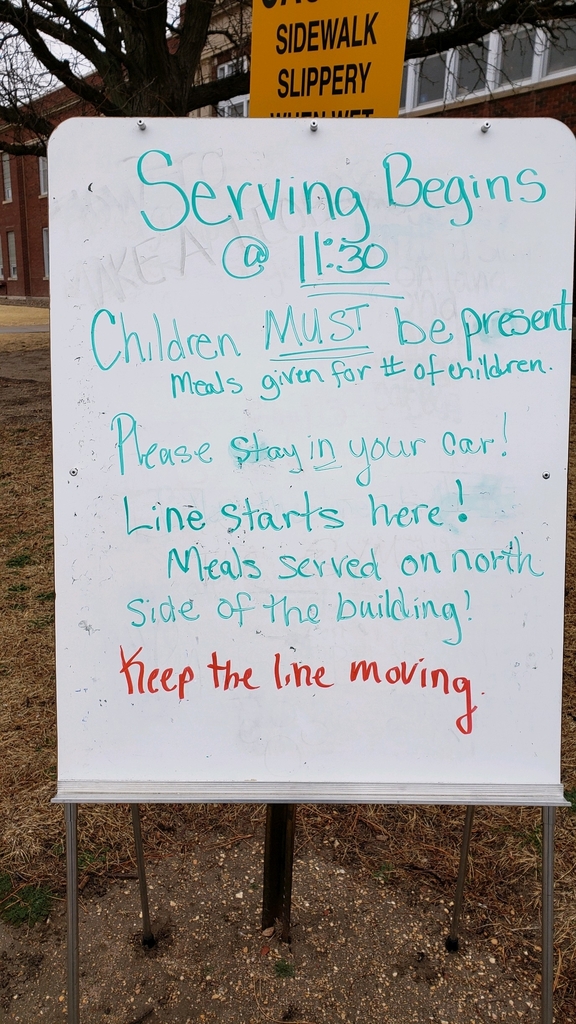 SIDEWALK
SLIPPERY
WHEN WET
Serving Begins
@ 11:30
Children MUST be present
Meals given for # of children.
Please stay in your car!
Line starts here!
Meals served on north
side of the building!
Keep the line moving.